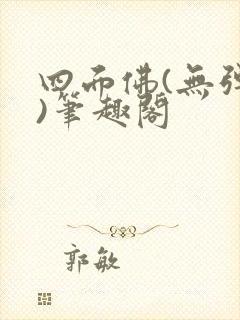 四而佛(無彈
)筆趣閣
郭敏